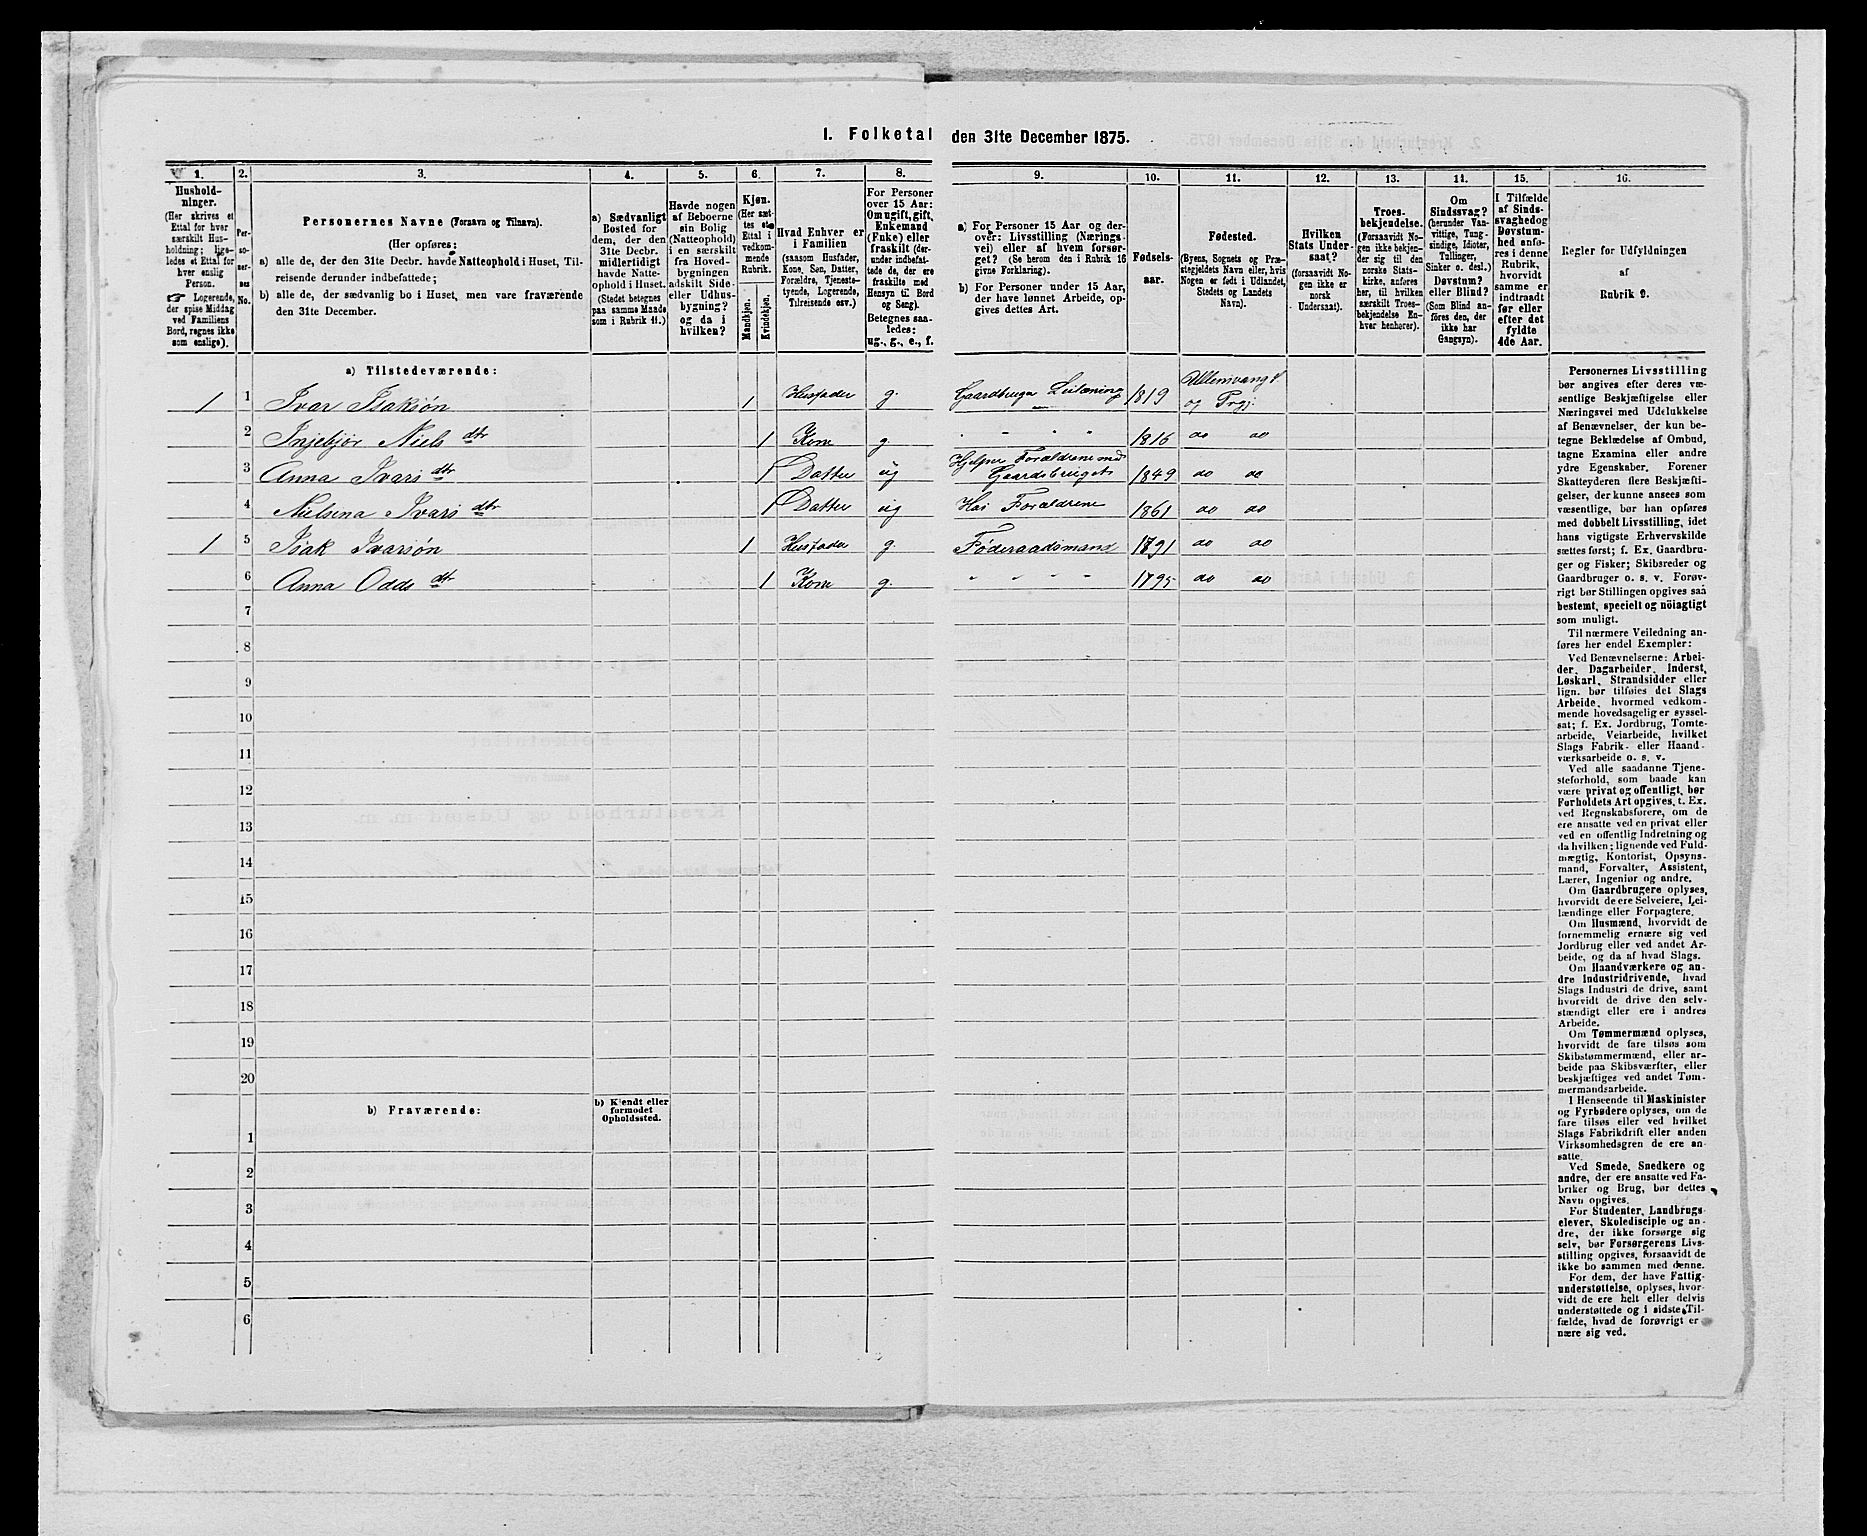 1. Folketal den 31te December 1875.
1.
2.
3.
4.
5.
6.
7.
8.
9.
10.
11.
12.
13.
14.
15.
16.
Hushold-
ninger.
(Her skrives et
Ettal for hver
særskilt Hus-
holdning; lige-
ledes et Ettal for
hver enslig
Person.
☞ Logerende,
der spise Middag
ved Familiens
Bord, regnes ikke
som enslige).
Per-
so-
ner-
nes
No.
Personernes Navne (Fornavn og Tilnavn).
(Her opføres:
a) alle de, der den 31te Decbr. havde Natteophold i Huset, Til-
reisende derunder indbefattede;
b) alle de, der sædvanlig bo i Huset, men vare fraværende
den 31te December.
a) Sædvanligt
Bosted for
dem, der den
31te Decbr.
midlertidigt
havde Natte-
ophold i Huset.
(Stedet betegnes
paa samme Maade
som i Rubrik 11.)
Havde nogen
af Beboerne
sin Bolig
(Natteophold)
i en særskilt
fra Hoved-
bygningen
adskilt Side-
eller Udhus-
bygning?
og da i
hvilken?
Kjøn.
(Her sæt-
tes et
Ettal i
vedkom-
mende
Rubrik.
Mandkjøn.
Kvindekjøn.
Hvad Enhver er
i Familien
(saasom Husfader,
Kone, Søn, Datter,
Forældre, Tjeneste-
tyende, Logerende,
Tilreisende osv.)
For Personer
over 15 Aar:
Om ugift, gift,
Enkemand
(Enke) eller
fraskilt (der-
under indbefat-
tede de, der ere
fraskilte med
Hensyn til Bord
og Seng).
Betegnes saa-
ledes:
ug., g., e., f.
a) For Personer 15 Aar og der-
over: Livsstilling (Nærings-
vei) eller af hvem forsør-
get? (Se herom den i Rubrik 16
givne Forklaring).
b) For Personer under 15 Aar,
der have lønnet Arbeide, op-
gives dettes Art.
Fødsels-
aar.
Fødested.
(Byens, Sognets og Præ-
stegjeldets Navn eller, hvis
Nogen er født i Udlandet,
Stedets og Landets
Navn).
Hvilken
Stats Under-
saat?
(forsaavidt No-
gen ikke er
norsk
Undersaat).
Troes-
bekjendelse.
(Forsaavidt No-
gen ikke bekjen-
der sig til den
norske Stats-
kirke, anføres
her, til hvilken
særskilt Troes-
bekjendelse En-
hver henhører).
Om
Sindssvag?
(herunder Van-
vittige, Tung-
sindige, Idioter,
Tullinger,
Sinker o. desl.)
Døvstum?
eller Blind?
(Som Blind an-
føres den, der
ikke har
Gangsyn).
I Tilfælde
af Sinds-
svaghed og
Døvstum-
hed anfø-
res i denne
Rubrik,
hvorvidt
samme er
indtraadt
før eller
efter det
fyldte
4de Aar.
Regler for Udfyldningen
af
Rubrik 9.
a) Tilstedeværende:
1 1 Ivar Isaksøn 1 Husfader g. Gaardbruger Leilænding 1819 Ullensvang S og Prgj.
2 Injebjør Niels dtr 1 Kone g " " " " 1816 do do
3 Anna Ivars dtr 1 Datter ug Hjelper Forældrene med Gaardsbruget 1849 do do
4 Nielsena Ivars dtr 1 Datter ug Hos Forældrene 1861 do do
1 5 Isak Ivarsøn 1 Husfader g. Føderaadsmand 1791 do do
6 Anna Odds dtr 1 Kone g. " " " " 1795 do do
7
8
9
10
11
12
13
14
15
16
17
18
19
20
b) Fraværende:
b) Kjendt eller
formodet
Opholdssted.
1
2
3
4
5
6
Personernes Livsstilling
bør angives efter deres væ-
sentlige Beskjæftigelse eller
Næringsvei med Udelukkelse
af Benævnelser, der kun be-
tegne Beklædelse af Ombud,
tagne Examina eller andre
ydre Egenskaber. Forener
Skatteyderen flere Beskjæfti-
gelser, der kunne ansees som
væsentlige, bør han opføres
med dobbelt Livsstilling, idet
hans vigtigste Erhvervskilde
sættes først; f. Ex. Gaardbru-
ger og Fisker; Skibsreder og
Gaardbruger o. s. v. Forøv-
rigt bør Stillingen opgives saa
bestemt, specielt og nöiagtigt
som muligt.
Til nærmere Veiledning an-
føres her endel Exempler:
Ved Benævnelserne: Arbei-
der, Dagarbeider, Inderst,
Løskarl, Strandsidder eller
lign. bør tilføies det Slags
Arbeide, hvormed vedkom-
mende hovedsagelig er syssel-
sat; f. Ex. Jordbrug, Tomte-
arbeide, Veiarbeide, hvilket
Slags Fabrik- eller Haand-
værksarbeide o. s. v.
Ved alle saadanne Tjene-
steforhold, som baade kan
være privat og offentligt, bør
Forholdets Art opgives, t. Ex.
ved Regnskabsførere, om de
ere ansatte ved en privat eller
ved en offentlig Indretning og
da hvilken; lignende ved Fuld-
mægtig, Kontorist, Opsyns-
mand, Forvalter, Assistent,
Lærer, Ingeniør og andre.
Om Gaardbrugere oplyses,
hvorvidt de ere Selveiere, Lei-
lændinge eller Forpagtere.
Om Husmænd, hvorvidt de
fornemmelig ernære sig ved
Jordbrug eller ved andet Ar-
beide, og da af hvad Slags.
Om Haandværkere og an-
dre Industridrivende, hvad
Slags Industri de drive, samt
hvorvidt de drive den selv-
stændigt eller ere i andres
Arbeide.
Om Tømmermænd oplyses,
hvorvidt de fare tilsøs som
Skibstømmermænd, eller ar-
beide paa Skibsværfter, eller
beskjæftiges ved andet Tøm-
mermandsarbeide.
I Henseende til Maskinister
og Fyrbødere oplyses, om de
fare tilsøs eller ved hvilket
Slags Fabrikdrift eller anden
Virksomhedsgren de ere an-
satte.
Ved Smede, Snedkere og
andre, der ere ansatte ved Fa-
briker og Brug, bør dettes
Navn opgives.
For Studenter, Landbrugs-
elever, Skoledisciple og an-
dre, der ikke forsørge sig
selv, bør Forsørgerens Livs-
stilling opgives, forsaavidt de
ikke bo sammen med denne.
For dem, der have Fattig-
understøttelse, oplyses, hvor-
vidt de ere helt eller delvis
understøttede og i sidste Til-
fælde, hvad de forøvrigt er-
nære sig ved.